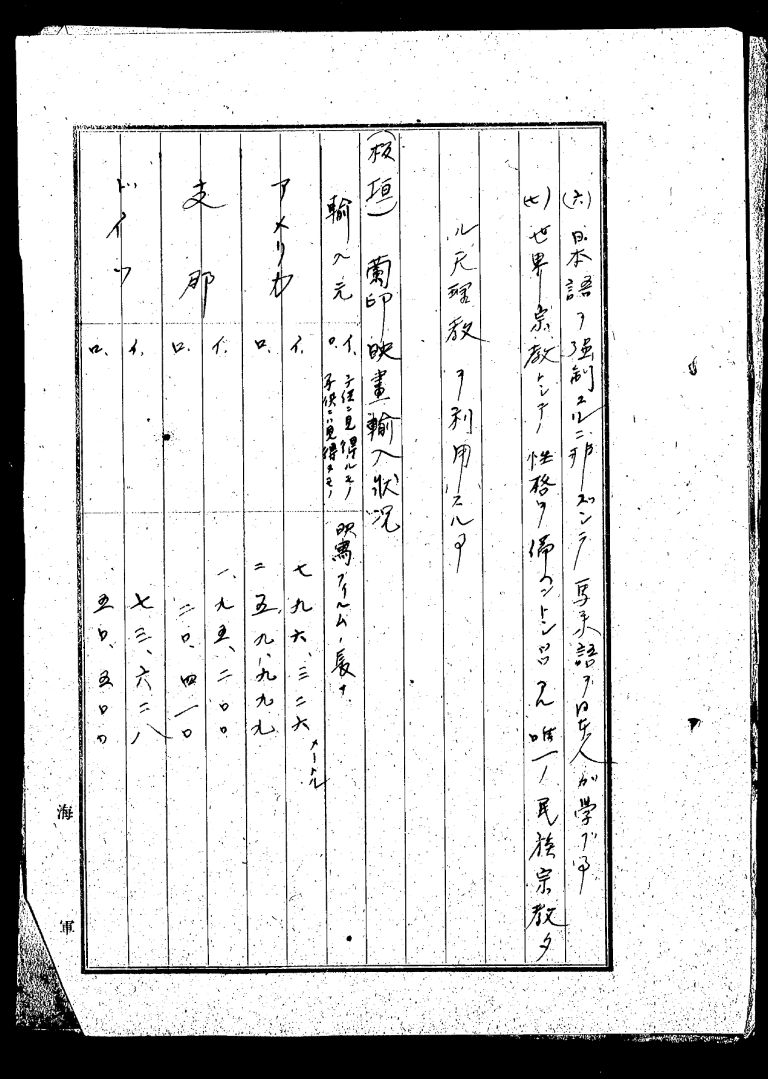 (六) 日本語ヲ強制スルニ非ズシテ馬来語ヲ日本人ガ学ブ事
(七) 世界宗教トシテノ性格ヲ備ヘントシツツアル唯一ノ民族宗教タ
ル天理教ヲ利用スル事
(板垣) 蘭印映畫輸入狀況
輸入元 イ、子供ニ見得ルモノ ロ、子供ニハ見得ヌモノ 映寫フイルムノ長サ
アメリカ イ、 七九六、三二六メートル
ロ、 二五九、九九九
支那 イ、 一九五、二〇〇
ロ、 二〇、四一〇
ドイツ イ、 七三、六二八
ロ、 五〇、五〇〇
海軍